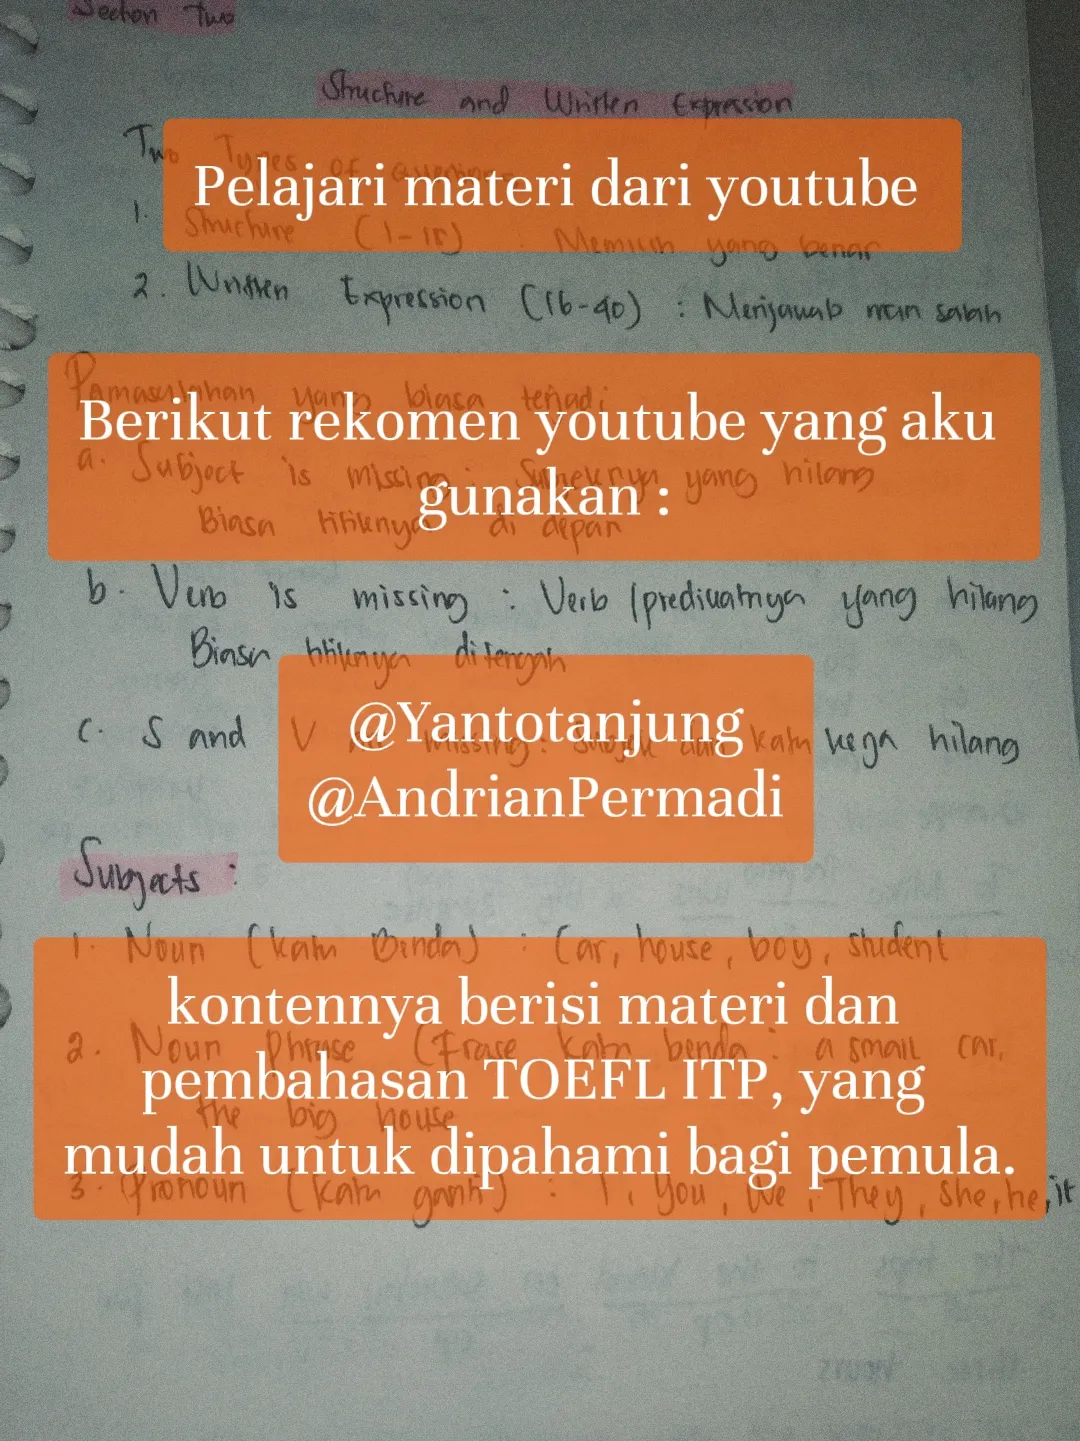 Section Two
Structure and Written Expression
Two Types of questions
Pelajari materi dari youtube
1. Structure (1-15) : Memilih yang benar
2. Written Expression (16-40) : Menjawab salah
yang biasa terjadi
Berikut rekomen youtube yang aku
a. Subject is missing : Subjeknya yang hilang
gunakan :
Biasa titiknya di depan
b. Verb is missing : Verb (predikatnya yang hilang
Biasa titiknya ditengah
@Yantotanjung
c. S and V missing : Subjek dan kata kerja hilang
@AndrianPermadi
Subjects :
1. Noun (kata Benda) : Car, house, boy, student
kontennya berisi materi dan
2. Noun Phrase (Frase kata benda : a small car,
pembahasan TOEFL ITP, yang
the big house
mudah untuk dipahami bagi pemula.
3. Pronoun (kata ganti) : I, You, We, They, she, he, it